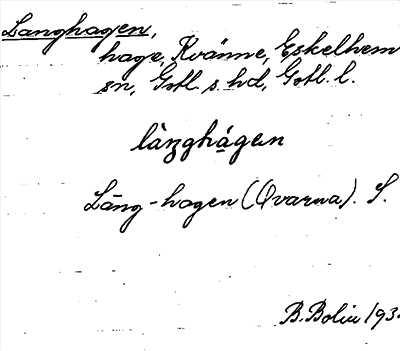 Langhagen,
hage, Kvänne, Eskelhem
sn, Gotl. s. hd, Gotl. l.
làŋghágen
Lång-hagen (Qvarna). S.
B. Bolin 193